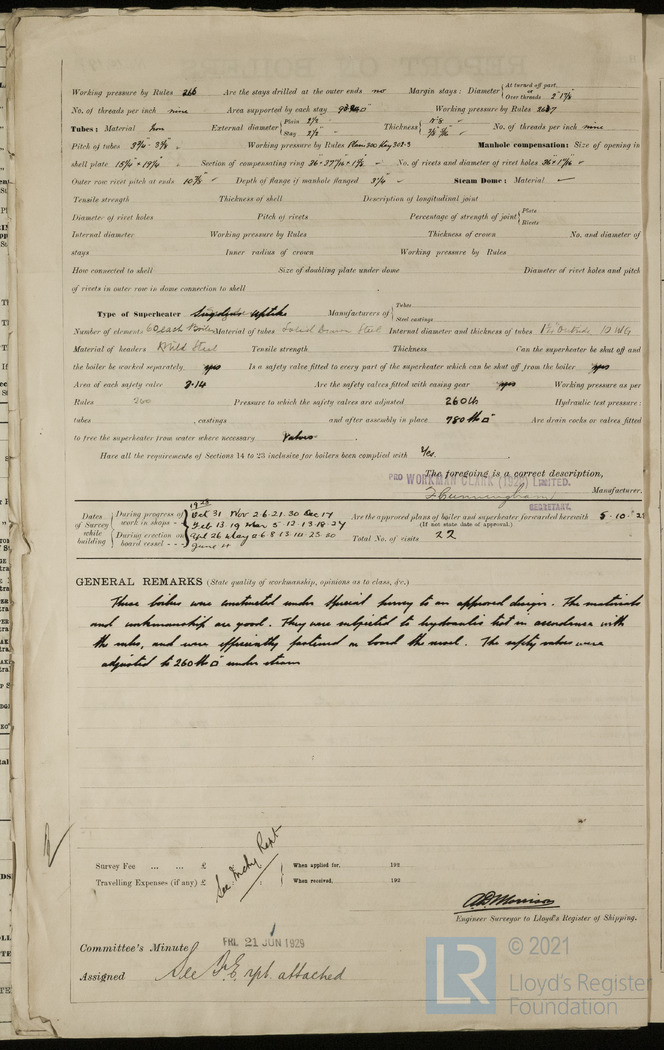 Working pressure by Rules 266 Are the stays drilled at the outer ends no Margin stays: Diameter { At turned off part. or Over threads 2" 1⅞
No. of threads per inch nine Area supported by each stay Working pressure by Rules 267
Tubes: Material Iron External diameter { Plain 2½" Stay 2½" Thickness { No. of threads per inch nine
Pitch of tubes 3¾" × 3⅝" Working pressure by Rules Manhole compensation: Size of opening in
shell plate 15¼" × 19¼" Section of compensating ring No. of rivets and diameter of rivet holes
Outer row rivet pitch at ends 10⅞" Depth of flange if manhole flanged 3¼" Steam Dome: Material
Tensile strength Thickness of shell Description of longitudinal joint
Diameter of rivet holes Pitch of rivets Percentage of strength of joint { Plate Rivets
Internal diameter Working pressure by Rules Thickness of crown No. and diameter of
stays Inner radius of crown Working pressure by Rules
How connected to shell Size of doubling plate under dome Diameter of rivet holes and pitch
of rivets in outer row in dome connection to shell
Type of Superheater Uptake Manufacturers of { Tubes Steel castings
Number of elements 60 each Boiler Material of tubes Solid Drawn Steel Internal diameter and thickness of tubes Outside
Material of headers Mild Steel Tensile strength Thickness Can the superheater be shut off and
the boiler be worked separately yes Is a safety valve fitted to every part of the superheater which can be shut off from the boiler yes
Area of each safety valve 3.14 Are the safety valves fitted with easing gear yes Working pressure as per
Rules 260 Pressure to which the safety valves are adjusted 260 lb Hydraulic test pressure:
tubes , castings and after assembly in place 780 lb □" Are drain cocks or valves fitted
to free the superheater from water where necessary Valves
Have all the requirements of Sections 14 to 23 inclusive for boilers been complied with Yes.
The foregoing is a correct description,
PRO WORKMAN CLARK (1928) LIMITED.
F Cunningham Manufacturer.
SECRETARY.
Dates of Survey while building { During progress of work in shops - - { 1928 Oct 31 Nov 2 6 21 30 Dec 17 Feb 13 19 Mar 5 12 13 18 24 Are the approved plans of boiler and superheater forwarded herewith 5.10.28
(If not state date of approval.)
During erection on board vessel - - - Apr 26 May 2 6 8 13 14 23 30 June 11 Total No. of visits 22
GENERAL REMARKS (State quality of workmanship, opinions as to class, &c.)
These boilers were constructed under special survey to an approved design. The materials
and workmanship are good. They were subjected to hydraulic test in accordance with
the rules, and were efficiently fastened on board the vessel. The safety valves were
adjusted to 260 lb □" under steam
Survey Fee ... ... £ : : { When applied for, 192
Travelling Expenses (if any) £ : : When received, 192
See Mchy Rept
A.D. Morrison
Engineer Surveyor to Lloyd's Register of Shipping.
Committee's Minute FRI. 21 JUN 1929
Assigned See F.E. rpt. attached
LR © 2021
Lloyd's Register
Foundation